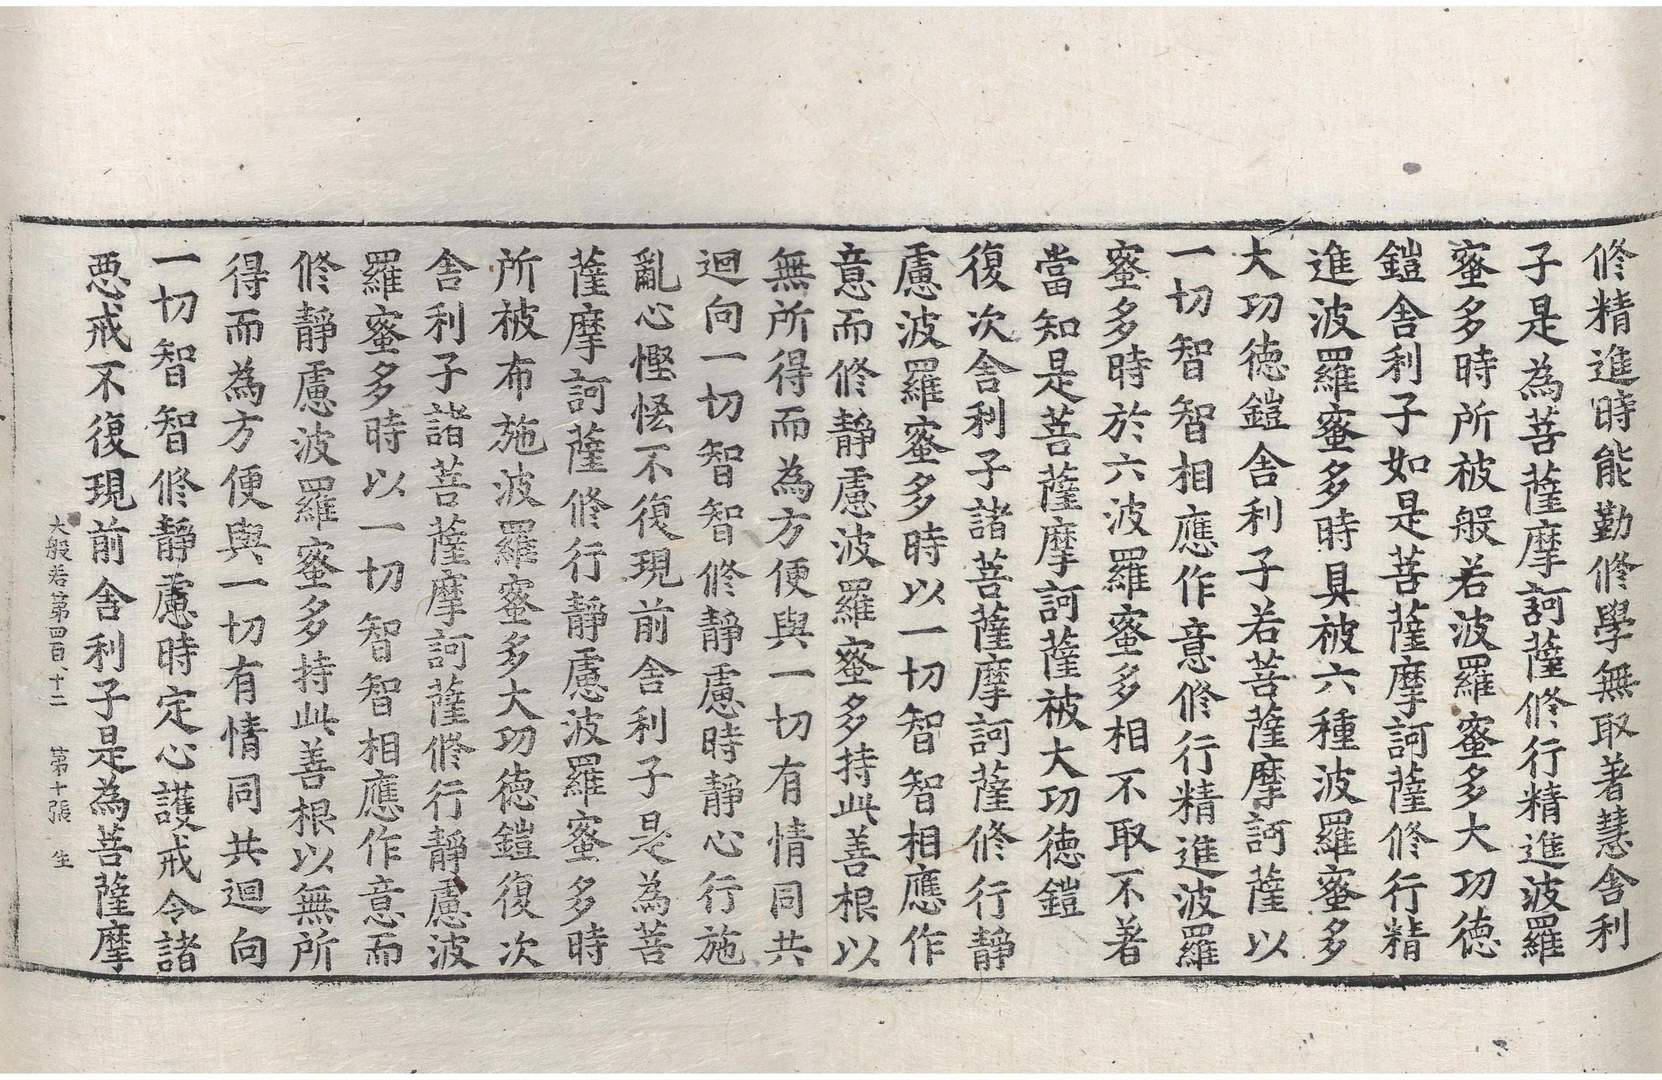 修精進時能勤修學無取著慧舍利
子是為菩薩摩訶薩修行精進波羅
蜜多時所被般若波羅蜜多大功德
鎧舍利子如是菩薩摩訶薩修行精
進波羅蜜多時具被六種波羅蜜多
大功德鎧舍利子若菩薩摩訶薩以
一切智智相應作意修行精進波羅
蜜多時於六波羅蜜多相不取不著
當知是菩薩摩訶薩被大功德鎧
復次舍利子諸菩薩摩訶薩修行靜
慮波羅蜜多時以一切智智相應作
意而修靜慮波羅蜜多持此善根以
無所得而為方便與一切有情同共
迴向一切智智修靜慮時靜心行施
亂心慳悋不復現前舍利子是為菩
薩摩訶薩修行靜慮波羅蜜多時
所被布施波羅蜜多大功德鎧復次
舍利子諸菩薩摩訶薩修行靜慮波
羅蜜多時以一切智智相應作意而
修靜慮波羅蜜多持此善根以無所
得而為方便與一切有情同共迴向
一切智智修靜慮時定心護戒令諸
惡戒不復現前舍利子是為菩薩摩
大般若第四百八十二 第十張 生